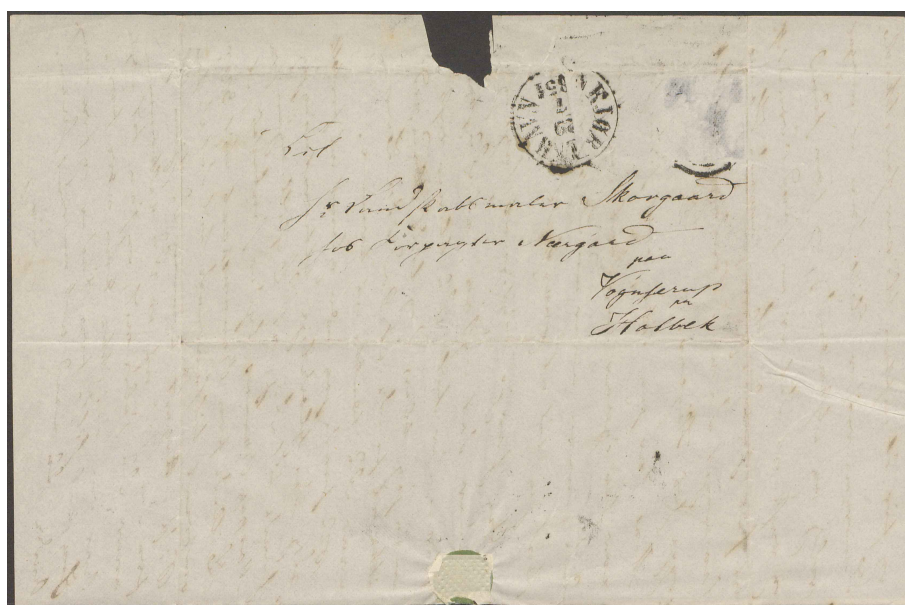 KIØBENHAVN
29
7
Til
Hr Landskabsmaler Skovgaard
hos Forpagter Neergaard
paa
Vognserup
pr
Holbek